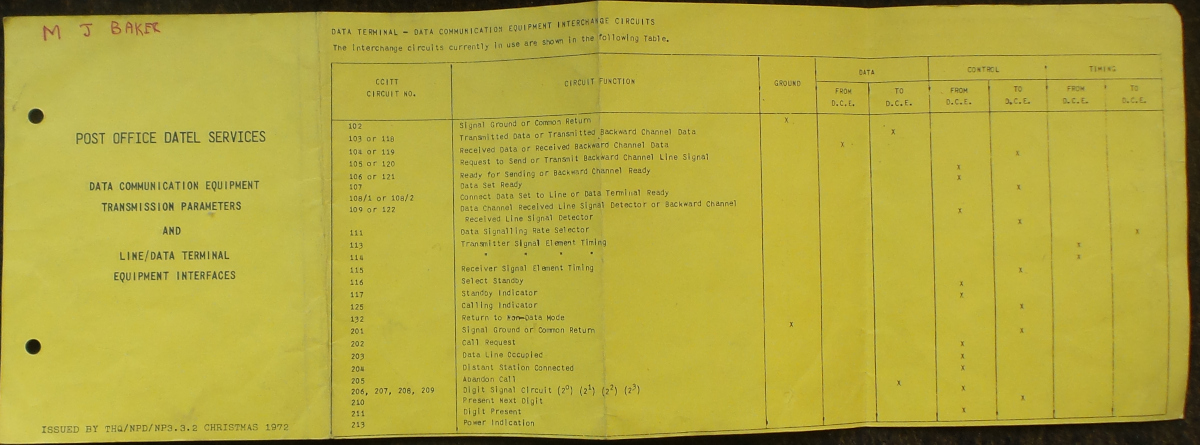 M J BAKER
POST OFFICE DATEL SERVICES
DATA COMMUNICATION EQUIPMENT
TRANSMISSION PARAMETERS
AND
LINE/DATA TERMINAL
EQUIPMENT INTERFACES
ISSUED BY THQ/NPD/NP3.3.2 CHRISTMAS 1972
DATA TERMINAL - DATA COMMUNICATION EQUIPMENT INTERCHANGE CIRCUITS
The interchange circuits currently in use are shown in the following Table.
CCITT CIRCUIT NO. CIRCUIT FUNCTION GROUND DATA CONTROL TIMING
FROM D.C.E. TO D.C.E. FROM D.C.E. TO D.C.E. FROM D.C.E. TO D.C.E.
102 Signal Ground or Common Return X
103 or 118 Transmitted Data or Transmitted Backward Channel Data X
104 or 119 Received Data or Received Backward Channel Data X
105 or 120 Request to Send or Transmit Backward Channel Line Signal X
106 or 121 Ready for Sending or Backward Channel Ready X
107 Data Set Ready X
108/1 or 108/2 Connect Data Set to Line or Data Terminal Ready X
109 or 122 Data Channel Received Line Signal Detector or Backward Channel
Received Line Signal Detector X
111 Data Signalling Rate Selector X
113 Transmitter Signal Element Timing X
114 " " " " X
115 Receiver Signal Element Timing X
116 Select Standby X
117 Standby Indicator X
125 Calling Indicator X
132 Return to Non-Data Mode X
201 Signal Ground or Common Return X
202 Call Request X
203 Data Line Occupied X
204 Distant Station Connected X
205 Abandon Call X
206, 207, 208, 209 Digit Signal Circuit (2⁰) (2¹) (2²) (2³) X
210 Present Next Digit X
211 Digit Present X
213 Power Indication X